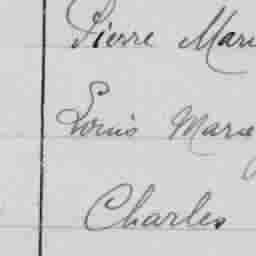 Pierre Mari
Louis Marie
Charles